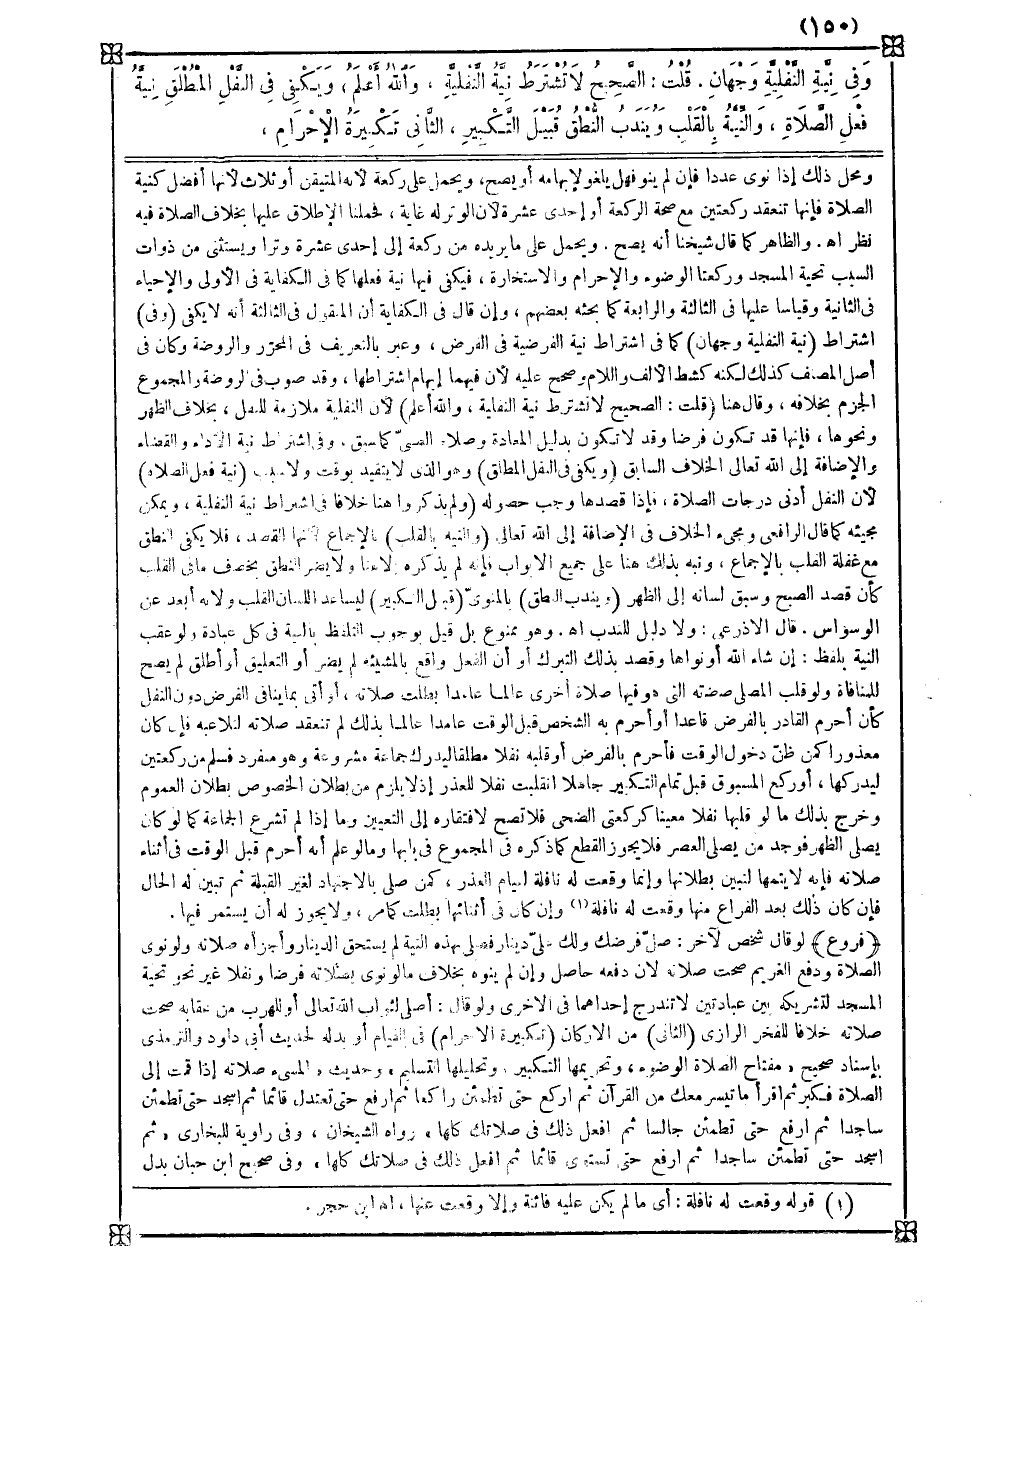 (١٥٠)
وَفِى نِيَّةِ النَّفْلِيَّةِ وَجْهَانِ . قُلْتُ : الصَّحِيحُ لَا تُشْتَرَطُ نِيَّةُ النَّفْلِيَّةِ ، وَاللهُ أَعْلَمُ ، وَيَكْفِى فِى النَّفْلِ الْمُطْلَقِ نِيَّةُ
فِعْلِ الصَّلَاةِ ، وَالنِّيَّةُ بِالْقَلْبِ وَيُنْدَبُ النُّطْقُ قُبَيْلَ التَّكْبِيرِ ، الثَّانِى تَكْبِيرَةُ الْإِحْرَامِ ،
ومحل ذلك إذا نوى عددا فإن لم ينو فهل يلغو لإبهامه أو يصح، ويحمل على ركعة لأنه المتيقن أو ثلاث لأنها أفضل كنية
الصلاة فإنها تنعقد ركعتين مع صحة الركعة أو إحدى عشرة لأن الوتر له غاية ، فحملنا الإطلاق عليها بخلاف الصلاة فيه
نظر اه . والظاهر كما قال شيخنا أنه يصح . ويحمل على ما يريده من ركعة إلى إحدى عشرة وترا ويستثنى من ذوات
السبب تحية المسجد وركعتا الوضوء والإحرام والاستخارة ، فيكفى فيها نية فعلها كما فى الكفاية فى الأولى والإحياء
فى الثانية وقياسا عليها فى الثالثة والرابعة كما بحثه بعضهم ، وإن قال فى الكفاية أن المنقول فى الثالثة أنه لا يكفى (وفى)
اشتراط (نية النفلية وجهان) كما فى اشتراط نية الفرضية فى الفرض ، وعبر بالتعريف فى المحرر والروضة وكان فى
أصل المصنف كذلك لكنه كشط الألف واللام وصحح عليه لأن فيهما إيهام اشتراطها ، وقد صوب فى الروضة والمجموع
الجزم بخلافه ، وقال هنا (قلت : الصحيح لا تشترط نية النفلية ، والله أعلم) لأن النفلية ملازمة للنفل ، بخلاف الظهر
ونحوها ، فإنها قد تكون فرضا وقد لا تكون بدليل المعادة وصلاة الصبىّ كما سبق . وفى اشتراط نية الأداء والقضاء
والإضافة إلى الله تعالى الخلاف السابق (ويكفى فى النفل المطلق) وهو الذى لا يتقيد بوقت ولا سبب (نية فعل الصلاة)
لأن النفل أدنى درجات الصلاة ، فإذا قصدها وجب حصوله (ولم يذكروا هنا خلافا فى اشتراط نية النفلية ، ويمكن
مجيئه كما قال الرافعى ومجىء الخلاف فى الإضافة إلى الله تعالى (والنية بالقلب) بالإجماع لأنها القصد ، فلا يكفى النطق
مع غفلة القلب بالإجماع ، ونبه بذلك هنا على جميع الأبواب فإنه لم يذكره إلا هنا ولا يضر النطق بخلاف ما فى القلب
كأن قصد الصبح وسبق لسانه إلى الظهر (ويندب النطق) بالمنوىّ (قبيل التكبير) ليساعد اللسان القلب ولأنه أبعد عن
الوسواس . قال الأذرعى : ولا دليل للندب اه . وهو ممنوع بل قيل بوجوب التلفظ بالنية فى كل عبادة ولو عقب
النية بلفظ : إن شاء الله أو نواها وقصد بذلك التبرك أو أن الفعل واقع بالمشيئة لم يضر أو التعليق أو أطلق لم يصح
للمنافاة ولو قلب المصلى صلاته التى هو فيها صلاة أخرى عالما عامدا بطلت صلاته ، أو أتى بما ينافى الفرض دون النفل
كأن أحرم القادر بالفرض قاعدا أو أحرم به الشخص قبل الوقت عامدا عالما بذلك لم تنعقد صلاته لتلاعبه فإن كان
معذورا كمن ظنّ دخول الوقت فأحرم بالفرض أو قلبه نفلا مطلقا ليدرك جماعة مشروعة وهو منفرد فسلم من ركعتين
ليدركها ، أو ركع المسبوق قبل تمام التكبير جاهلا انقلبت نفلا للعذر إذ لا يلزم من بطلان الخصوص بطلان العموم
وخرج بذلك ما لو قلبها نفلا معينا كركعتى الضحى فلا تصح لافتقاره إلى التعيين وما إذا لم تشرع الجماعة كما لو كان
يصلى الظهر فوجد من يصلى العصر فلا يجوز القطع كما ذكره فى المجموع فى بابها وما لو علم أنه أحرم قبل الوقت فى أثناء
صلاته فإنه لا يتمها لتبين بطلانها وإنما وقعت له نافلة لقيام العذر ، كمن صلى بالاجتهاد لغير القبلة ثم تبين له الحال
فإن كان ذلك بعد الفراغ منها وقعت له نافلة (١) وإن كان فى أثنائها بطلت كما مر ، ولا يجوز له أن يستمر فيها .
﴿فروع﴾ لو قال شخص لآخر : صلّ فرضك ولك علىّ دينار فصلى بهذه النية لم يستحق الدينار وأجزأه صلاته ولو نوى
الصلاة ودفع الغريم صحت صلاته لأن دفعه حاصل وإن لم ينوه بخلاف ما لو نوى بصلاته فرضا ونفلا غير نحو تحية
المسجد لتشريكه بين عبادتين لا تندرج إحداهما فى الأخرى ولو قال : أصلى لثواب الله تعالى أو للهرب من عقابه صحت
صلاته خلافا للفخر الرازى (الثانى) من الأركان (تكبيرة الإحرام) فى القيام أو بدله لحديث أبى داود والترمذى
بإسناد صحيح « مفتاح الصلاة الوضوء ، وتحريمها التكبير ، وتحليلها التسليم » وحديث « المسىء صلاته إذا قمت إلى
الصلاة فكبر ثم اقرأ ما تيسر معك من القرآن ثم اركع حتى تطمئن راكعا ثم ارفع حتى تعتدل قائما ثم اسجد حتى تطمئن
ساجدا ثم ارفع حتى تطمئن جالسا ثم افعل ذلك فى صلاتك كلها » رواه الشيخان ، وفى رواية للبخارى « ثم
اسجد حتى تطمئن ساجدا ثم ارفع حتى تستوى قائما ثم افعل ذلك فى صلاتك كلها » وفى صحيح ابن حبان بدل
(١) قوله وقعت له نافلة : أى ما لم يكن عليه فائتة وإلا وقعت عنها ، اه ابن حجر .